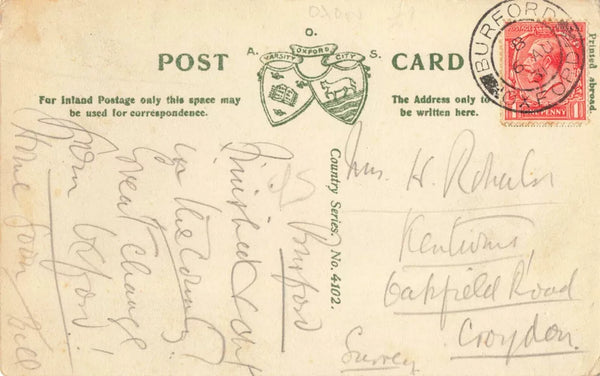 OXON
A. O. S.
VARSITY OXFORD CITY
POST CARD
For Inland Postage only this space may
be used for correspondence.
The Address only to
be written here.
Printed abroad.
BURFORD
OXFORD
PENNY
Country Series. No. 4102.
Burford
Finished out
in the country
great change
from Oxford!
Home soon Bill
Mrs. H. Roberts
Oakfield Road
Croydon.
Surrey